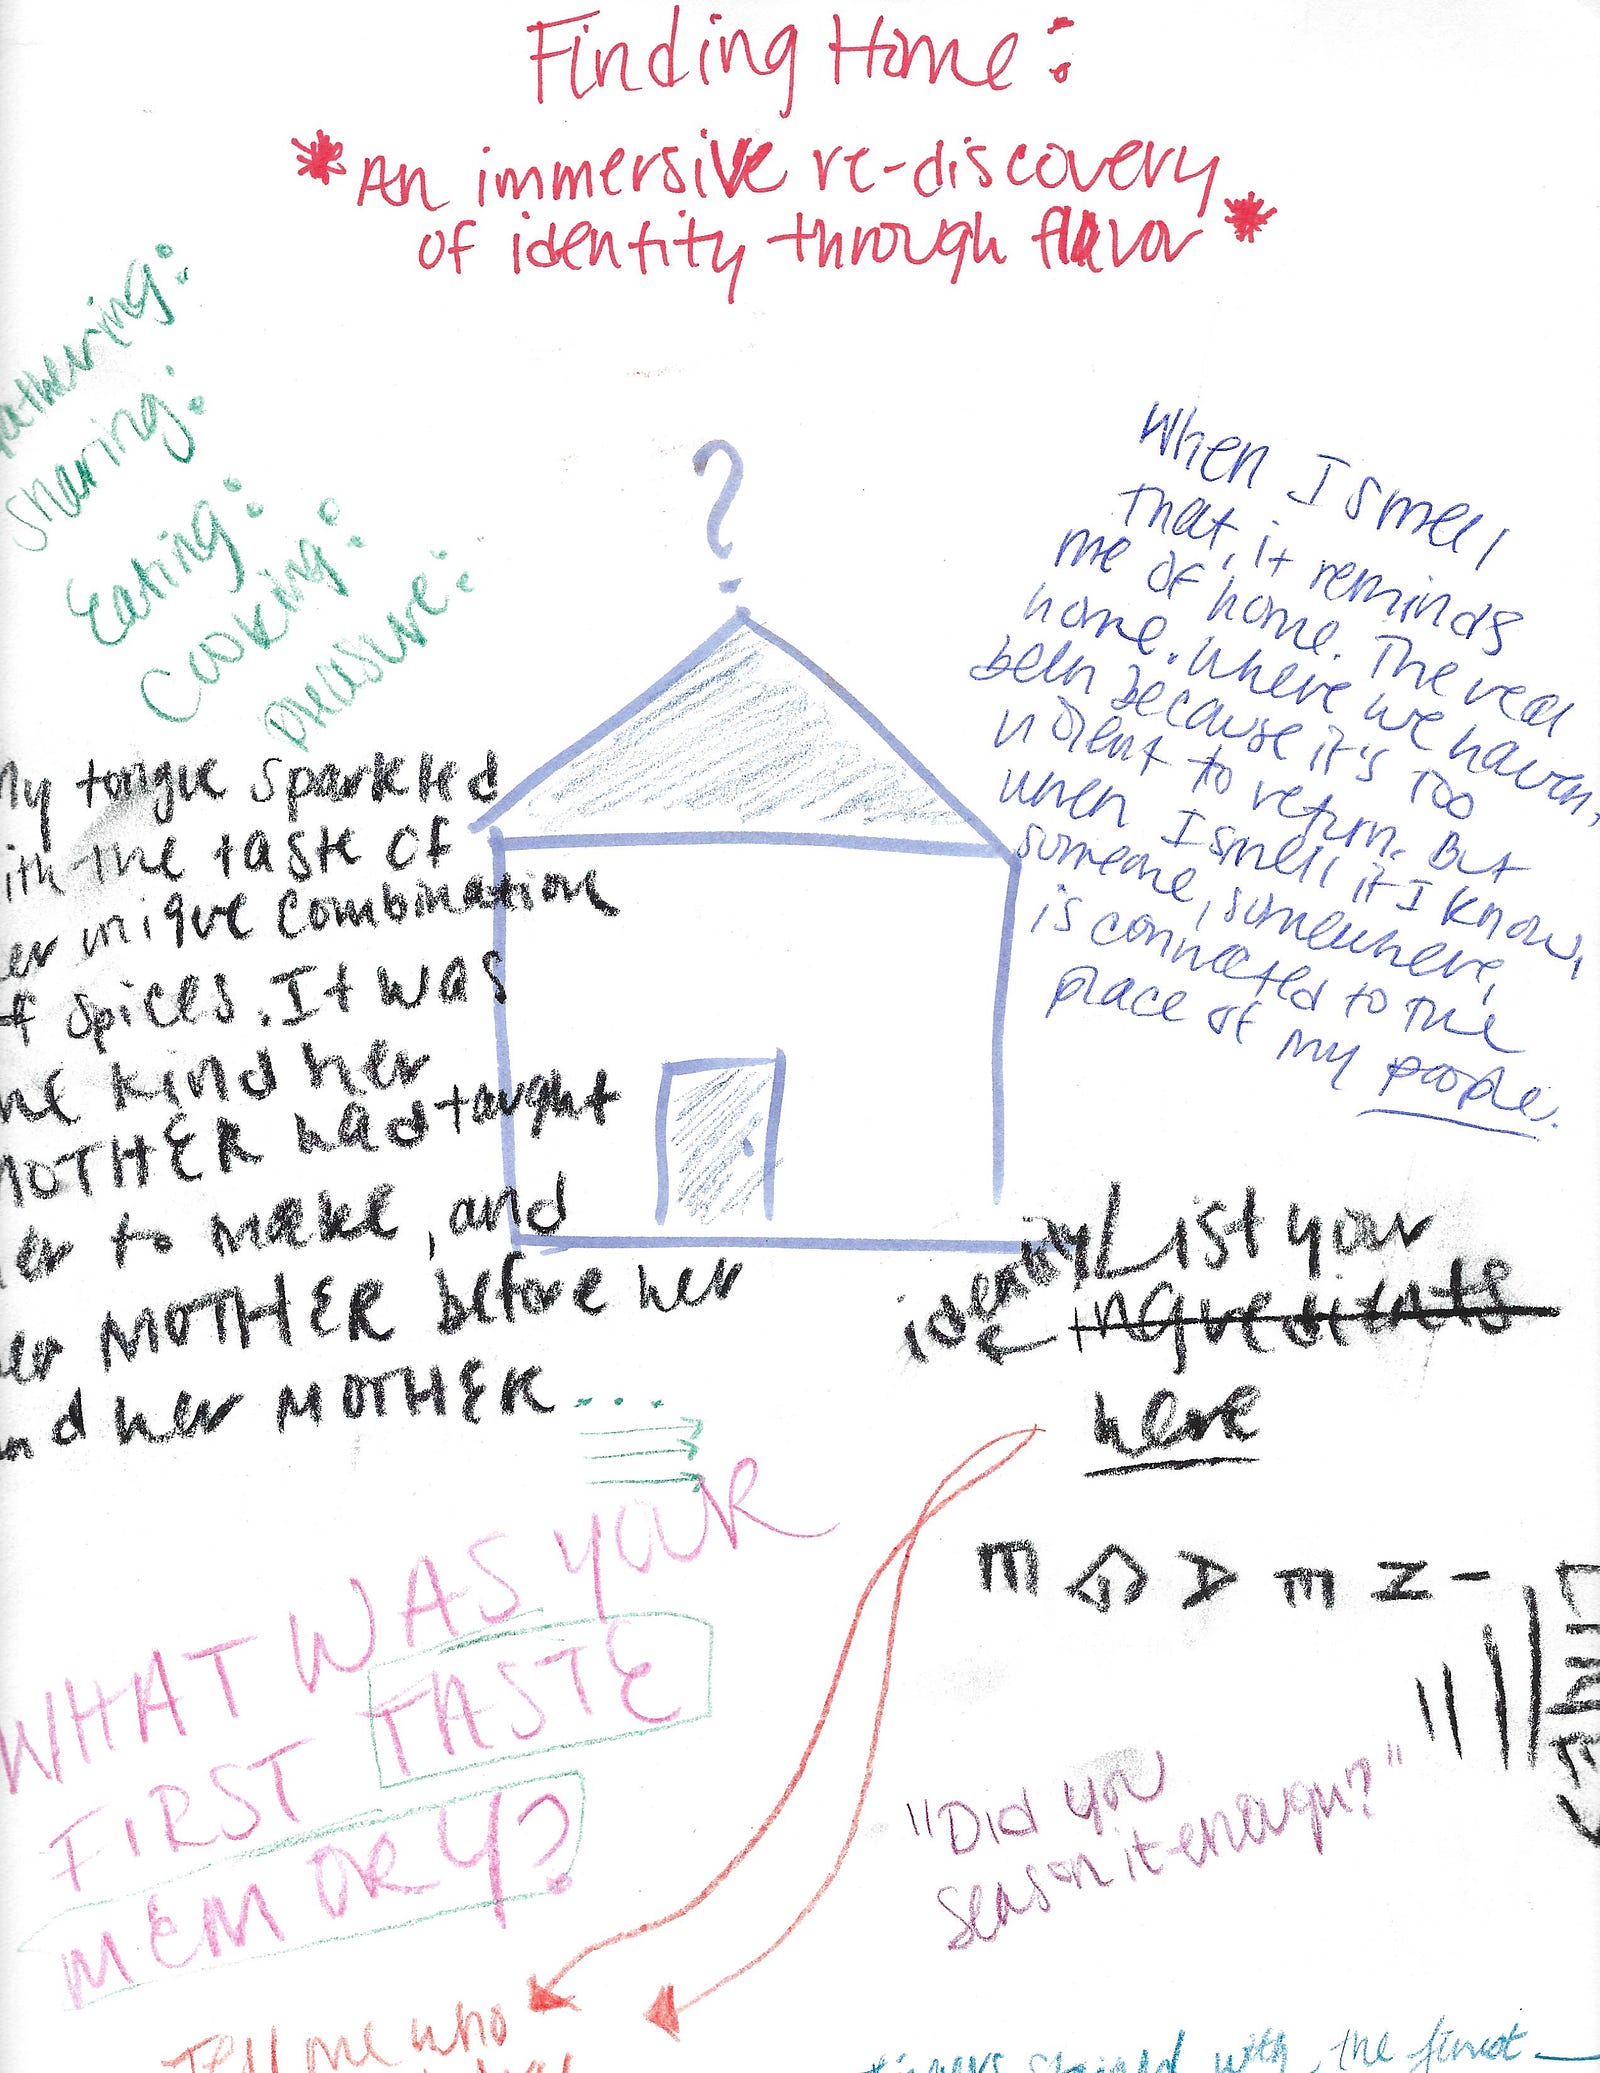 Finding Home:
*An immersive re-discovery
of identity through flavor*
Gathering:
Sharing:
Eating:
Cooking:
pleasure:
?
When I smell
that, it reminds
me of home. The real
home. Where we haven't
been because it's too
violent to return. But
when I smell it I know,
someone, somewhere,
is connected to the
place of my people.
My tongue sparkled
with the taste of
her unique combination
of spices. It was
the kind her
MOTHER had taught
her to make, and
her MOTHER before her
and her MOTHER...
identity List your
ingredients
here
WHAT WAS YOUR
FIRST TASTE
MEMORY?
"Did you
season it enough?"
Tell me who
stained with, the finest